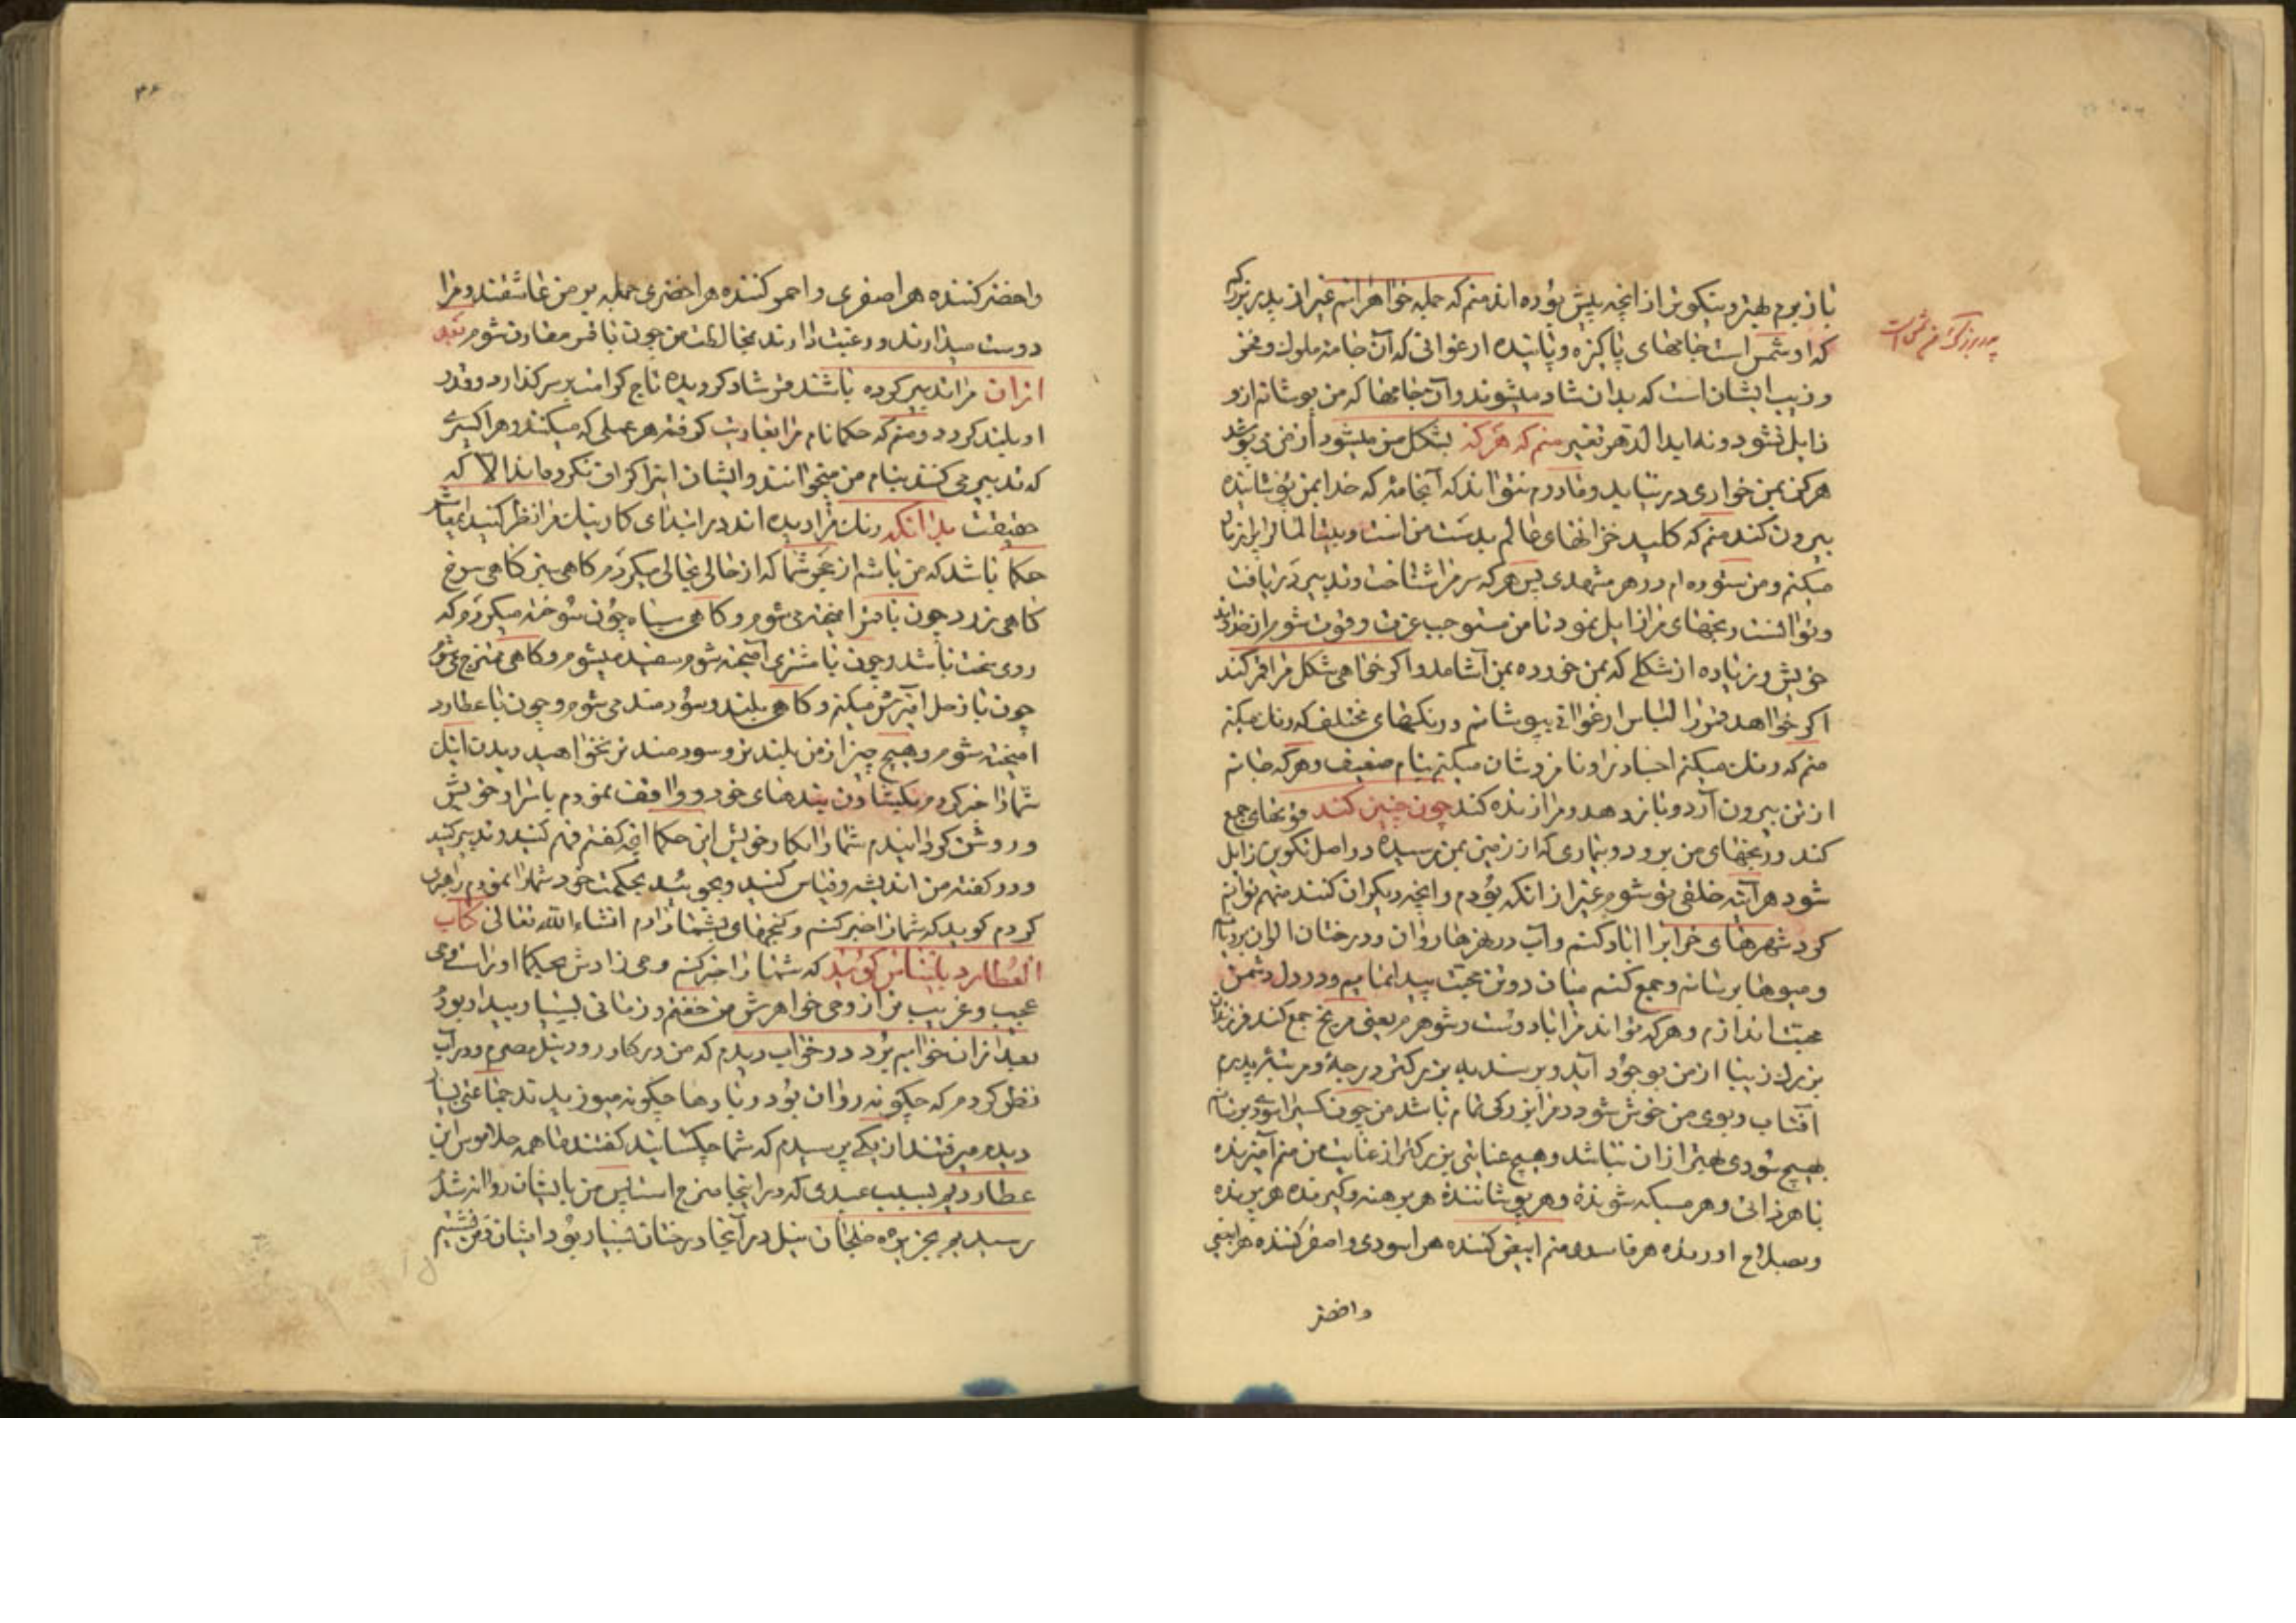 باز بوم بهتر و نیکوتر از انچه پیش بوده اند منم که جمله خواهرانم غیر از پدر بزرک
که او شمس است جامهای پاکیزه و پانیده ارغوانی که آن جامه ملوک و فخر
و زیب ایشان است که بدان شاد میشوند و آن جامها که من پوشانم از و
زایل نشود و نه ابدالدهر تغیر منم که هرکه بشکل من میشود از من می پوشد
هرکز بمن خواری در نیاید و مادرم نتواند که آنجامه که خدا بمن پوشانیده
بیرون کند منم که کلید خزانهای عالم بدست من است و بیت المال را باز
میکنم و من ستوده ام در هر مشهدی پس هرکه سر مرا شناخت و تدبیر دریافت
و توانست رنجهای مرا زایل نمود تا من مستوجب عزت و قوت شوم از
خویش و زیاده از شکلی که بمن خورده بمن آشامد و اکر خواهی شکل مرا قمر کند
اکر خواهد قمر را لباس ارغوانی بپوشانم و رنکهای مختلف که رنک میکنم
منم که رنک میکنم اجساد را و نامزدشان میکنم بنام ضعیف و هرکه جانم
از تن بیرون آرد و باز دهد و مرا زنده کند چون چنین کند قوتهای جمع
کند و رنجهای من برود و بیماری که از زمین بمن رسیده در اصل تکوین زایل
شود هر آینه خلقی نو شوم غیر از انکه بودم و انچه دیکران کنند منهم توانم
کرد شهرهای خراب را اباد کنم و آب در نهرها روان و درختان الوان برویانم
و میوها برسانم و جمع کنم میان دو تن محبت پیدا نمایم و در دل دشمن
محبت اندازم و هرکه تواند مرا با دوست و شوهرم یعنی مریخ جمع کند فرزندان
بزرک زیبا از من بوجود آید و برسند به بزرکتر درجه و مرتبه پدرم
آفتاب و بوی من خوش شود و مرا بزرکی تمام باشد من چون کسی را بوی برسانم
هیچ سودی بهتر از ان نباشد و هیچ عنایتی بزرکتر از عنایت من منم آمیزنده
با هر ذاتی و هر مسبکه شونده و هر پوشاننده هر برهنه و کیرنده هر پرنده
و بصلاح اورنده هر فاسد و منم ابیض کننده هر اسودی و اصفر کننده هر ابیضی
و اخضر
پدر بزرک اخ شمس است
۳۶
و اخضر کننده هر اصفری و احمر کننده هر اخضری جمله بر من عاشقند و مرا
دوست میدارند و رغبت دارند بمخالطت من چون با قمر مقارن شوم بعد
ازان مرا تدبیر کرده باشند قمر شاد کردیده تاج کرامت بر سر کذارد و قدر
او بلند کردد و منم که حکما نام مرا بغادیت کرفته هر عملی که میکنند و هر اکسیری
که تدبیر می کنند بنام من میخوانند و ایشان این را کزاف نکرده اند الا که
حقیقت بدانکه رنک مرا دیده اند در ابتدای کار نیک مرا نظر کنید ای
حکما باشد که من باشم از عجز شما که از حالی بحالی میکردم کاهی سبز کاهی سرخ
کاهی زرد چون با قمر امیخته می شوم و کاهی سیاه چون سوخته میکردم که
روی سخت باشد و چون با مشتری آمیخته شوم سفید میشوم و کاهی ممتزج می شوم
چون با زحل امیزش میکنم و کاهی بلند و سودمند می شوم و چون با عطارد
امیخته شوم و هیچ چیز از من بلندتر و سودمندتر نخواهید دیدن اینک
شما را خبر کردم بکیشادن بندهای خود و واقف نمودم باسرار خویش
و روشن کردانیدم شما را بکار خویش این حکما انچه کفتم فهم کنید و تدبیر کنید
و در کفته من اندیشه و قیاس کنید و بجوئید بحکمت خود شما را نمودم راهبری
کردم کوید که شما را خبر کنم و کنجهای بشما دارم انشاءالله تعالی کتاب
العطارد بابنیاس کوید که شما را خبر کنم وحی دادش بحیکما اوراست وحی
عجیب و غریب مرا از وحی خواهرش من خفتم و زمانی بسیار بیدار بود
بعد از ان خوابم برد در خواب دیدم که من در کنار رود نیل مصرم و در آب
نظر کردم که چکونه روان بود و بادها چکونه میوزید تا جماعتی بسیار
دیدم میرفتند از یکی پرسیدم که شما چکسانید کفتند ما همه جلاموس ابن
عطاردیم بسبب عیدی که در اینجا مخرج است پس من با ایشان روانه شدم
رسیدیم بجزیره خلجان نیل در آنجا درختان بسیار بود ایشان و من نشستیم